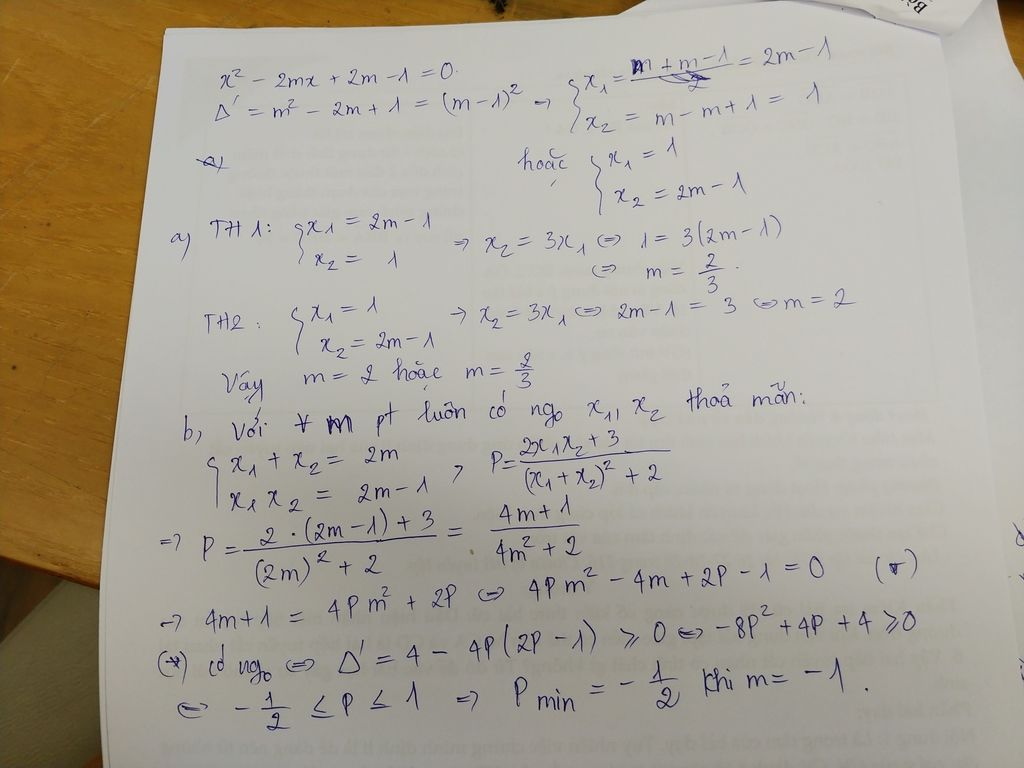 x² - 2mx + 2m - 1 = 0.
Δ' = m² - 2m + 1 = (m-1)² → { x₁ = m + m - 1 = 2m - 1
x₂ = m - m + 1 = 1
hoặc { x₁ = 1
x₂ = 2m - 1
a) TH1: { x₁ = 2m - 1
x₂ = 1 ⇒ x₂ = 3x₁ ⇔ 1 = 3(2m-1)
⇔ m = 2/3.
TH2: { x₁ = 1
x₂ = 2m - 1 → x₂ = 3x₁ ⇔ 2m - 1 = 3 ⇔ m = 2
Vậy m = 2 hoặc m = 2/3
b, Với ∀ m pt luôn có ngo x₁, x₂ thoả mãn:
{ x₁ + x₂ = 2m
x₁ x₂ = 2m - 1 , P = (2x₁x₂ + 3)/((x₁ + x₂)² + 2)
⇒ P = (2·(2m-1) + 3)/((2m)² + 2) = (4m + 1)/(4m² + 2)
→ 4m + 1 = 4Pm² + 2P ⇔ 4Pm² - 4m + 2P - 1 = 0 (*)
(*) có ngo ⇔ Δ' = 4 - 4P(2P - 1) ≥ 0 ⇔ -8P² + 4P + 4 ≥ 0
⇔ -1/2 ≤ P ≤ 1 ⇒ P min = -1/2 khi m = -1.